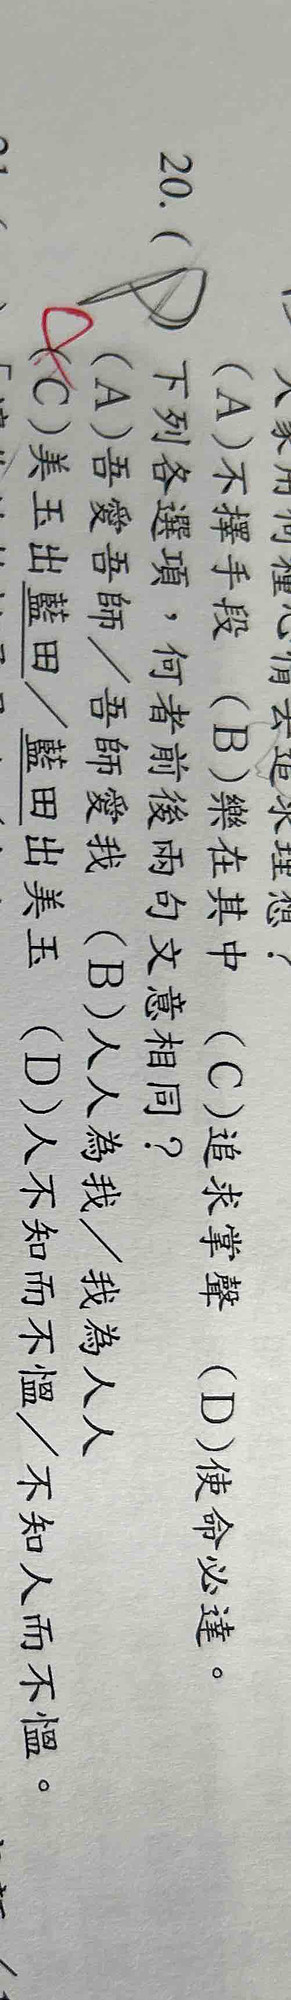 人家用何種心情去追求理想？
(A)不擇手段 (B)樂在其中 (C)追求掌聲 (D)使命必達。
20.(D)下列各選項，何者前後兩句文意相同？
(A)吾愛吾師／吾師愛我 (B)人人為我／我為人人
(C)美玉出藍田／藍田出美玉 (D)人不知而不慍／不知人而不慍。